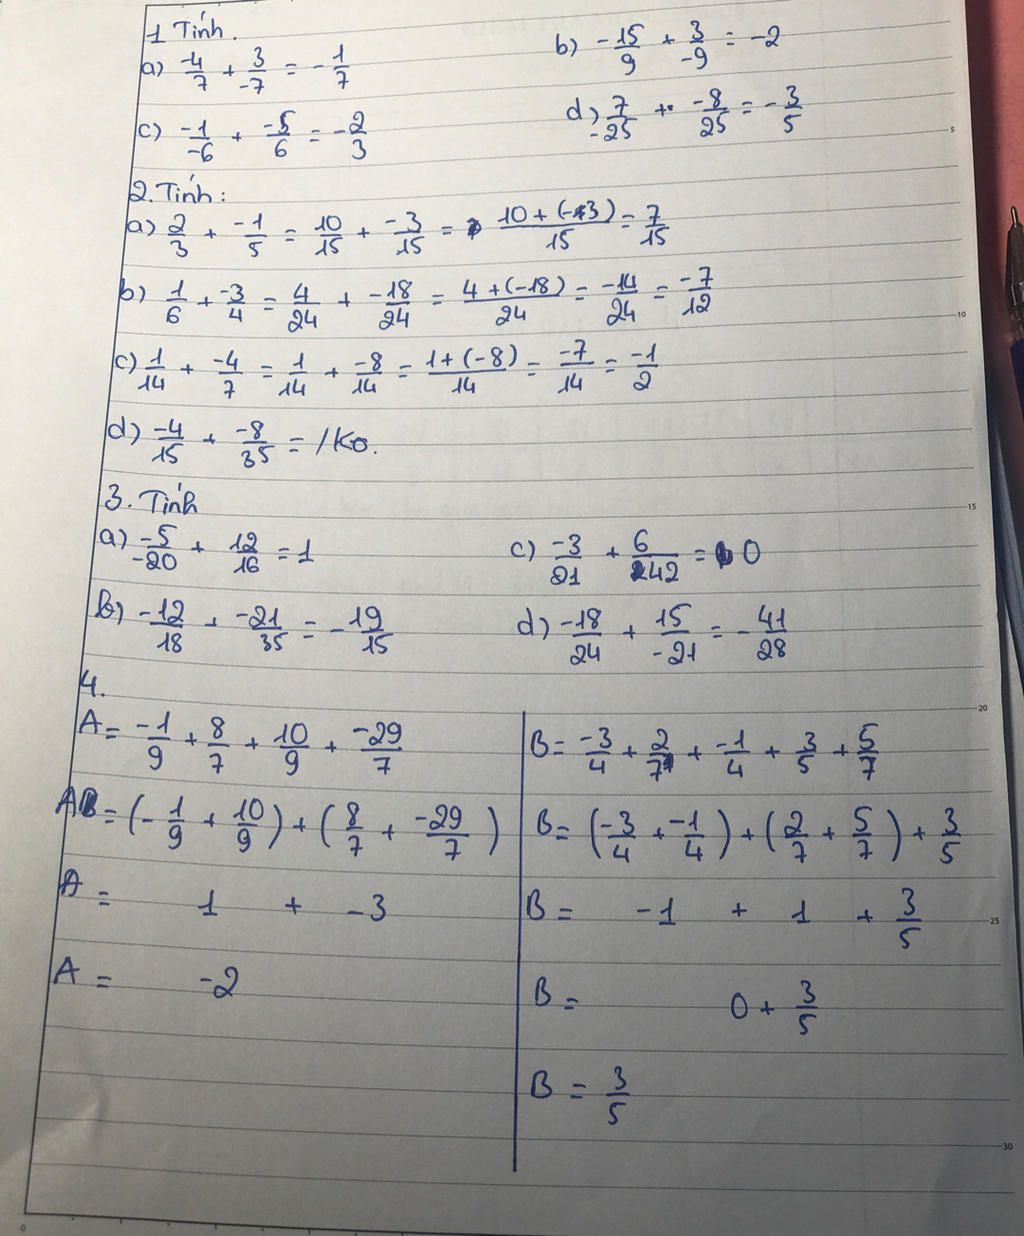 1 Tính.
a) -4/7 + 3/-7 = -1/7 b) -15/9 + 3/-9 = -2
c) -1/-6 + -5/6 = -2/3 d) 7/-25 + -8/25 = -3/5
2. Tính:
a) 2/3 + -1/5 = 10/15 + -3/15 = 10+(-3)/15 = 7/15
b) 1/6 + -3/4 = 4/24 + -18/24 = 4+(-18)/24 = -14/24 = -7/12
c) 1/14 + -4/7 = 1/14 + -8/14 = 1+(-8)/14 = -7/14 = -1/2
d) -4/15 + -8/35 = /Ko.
3. Tính
a) -5/-20 + 12/16 = 1 c) -3/21 + 6/42 = 0
b) -12/18 + -21/35 = -19/15 d) -18/24 + 15/-21 = -41/28
4.
A = -1/9 + 8/7 + 10/9 + -29/7
A = (-1/9 + 10/9) + (8/7 + -29/7)
A = 1 + -3
A = -2
B = -3/4 + 2/7 + -1/4 + 3/5 + 5/7
B = (-3/4 + -1/4) + (2/7 + 5/7) + 3/5
B = -1 + 1 + 3/5
B = 0 + 3/5
B = 3/5
5
10
15
20
25
30
0